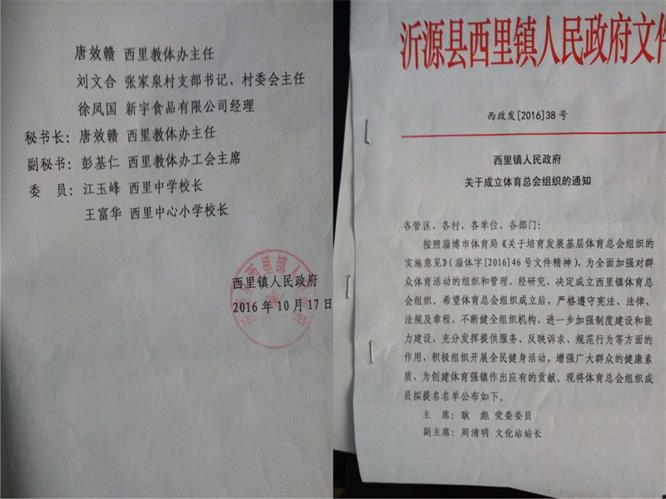 唐效赣 西里教体办主任
刘文合 张家泉村支部书记、村委会主任
徐凤国 新宇食品有限公司经理
秘书长：唐效赣 西里教体办主任
副秘书：彭基仁 西里教体办工会主席
委 员：江玉峰 西里中学校长
王富华 西里中心小学校长
西里镇人民政府
2016年10月17日
沂源县西里镇人民政府文件
西政发[2016]38号
西里镇人民政府
关于成立体育总会组织的通知
各管区、各村、各单位、各部门：
按照淄博市体育局《关于培育发展基层体育总会组织的
实施意见》（淄体字[2016]46号文件精神），为全面加强对群
众体育活动的组织和管理，经研究，决定成立西里镇体育总
会组织。希望体育总会组织成立后，严格遵守宪法、法律、
法规及章程，不断健全组织机构，进一步加强制度建设和能
力建设，充分发挥提供服务、反映诉求、规范行为等方面的
作用，积极组织开展全民健身活动，增强广大群众的健康素
质，为创建体育强镇作出应有的贡献。现将体育总会组织成
员拟提名名单公布如下。
主 席：耿 彪 党委委员
副主席：周清明 文化站站长